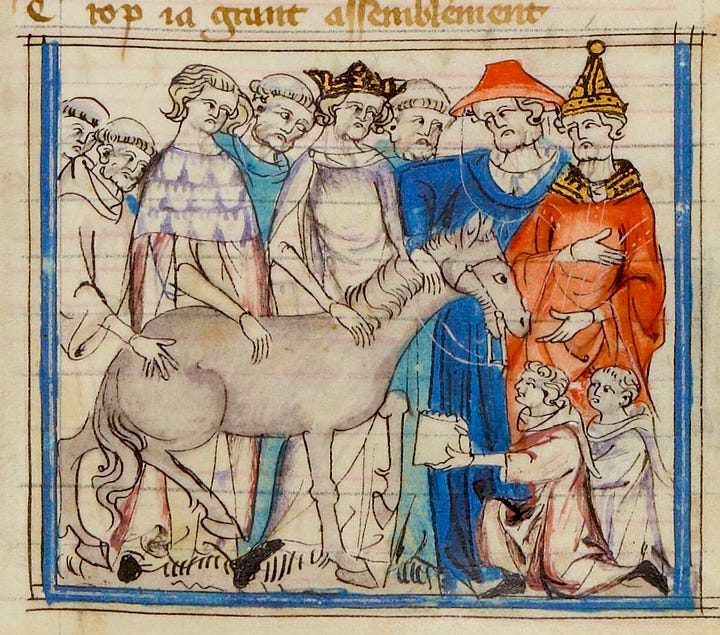 T rop ia grant assemblement